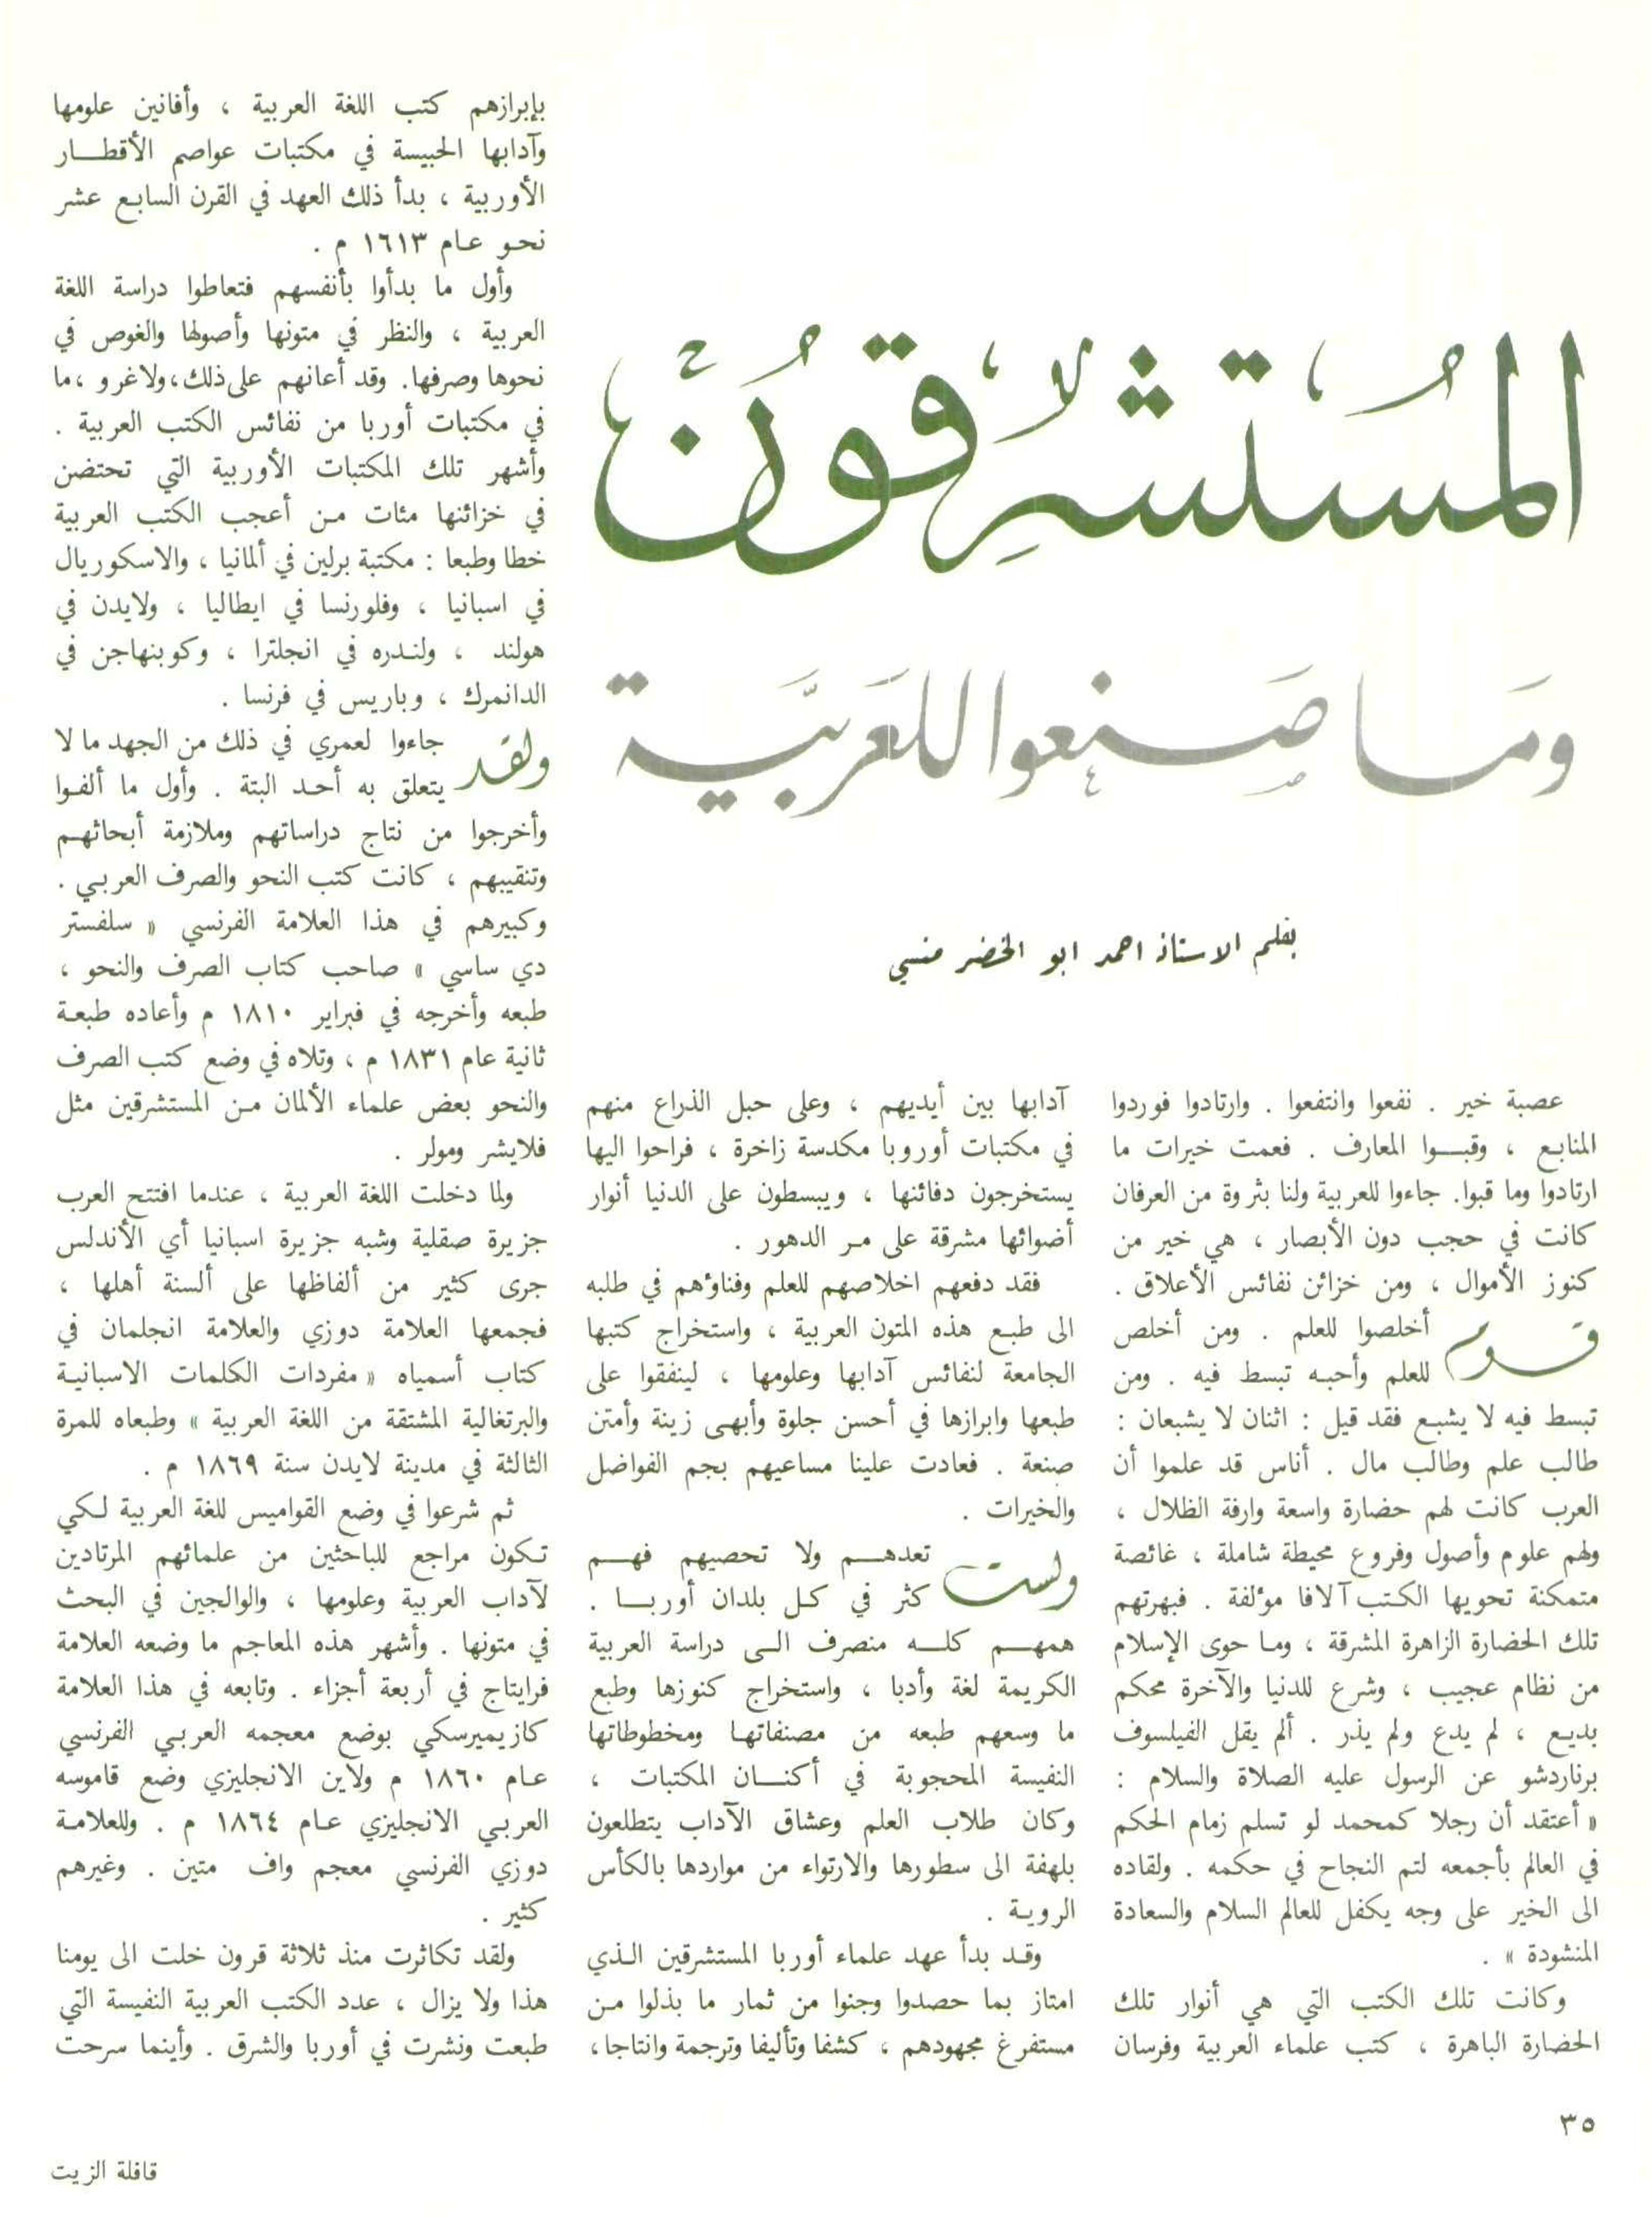 المُستشرِقونْ
وَمَا صَنعوا للعَرَبيَّة
بقلم الاستاذ احمد ابو الخضر منسي
عصبة خير . نفعوا وانتفعوا . وارتادوا فوردوا
المنابع ، وقبسوا المعارف . فعمت خيرات ما
ارتادوا وما قبوا. جاءوا للعربية ولنا بثروة من العرفان
كانت في حجب دون الأبصار ، هي خير من
كنوز الأموال ، ومن خزائن نفائس الأعلاق .
قوم أخلصوا للعلم . ومن أخلص
للعلم وأحبه تبسط فيه . ومن
تبسط فيه لا يشبع فقد قيل : اثنان لا يشبعان :
طالب علم وطالب مال . أناس قد علموا أن
العرب كانت لهم حضارة واسعة وارفة الظلال ،
ولهم علوم وأصول وفروع محيطة شاملة ، غائصة
متمكنة تحويها الكتب آلافا مؤلفة . فبهرتهم
تلك الحضارة الزاهرة المشرقة ، وما حوى الإسلام
من نظام عجيب ، وشرع للدنيا والآخرة محكم
بديع ، لم يدع ولم يذر . ألم يقل الفيلسوف
برناردشو عن الرسول عليه الصلاة والسلام :
« أعتقد أن رجلا كمحمد لو تسلم زمام الحكم
في العالم بأجمعه لتم النجاح في حكمه . ولقاده
الى الخير على وجه يكفل للعالم السلام والسعادة
المنشودة » .
وكانت تلك الكتب التي هي أنوار تلك
الحضارة الباهرة ، كتب علماء العربية وفرسان
آدابها بين أيديهم ، وعلى حبل الذراع منهم
في مكتبات أوروبا مكدسة زاخرة ، فراحوا اليها
يستخرجون دفائنها ، ويبسطون على الدنيا أنوار
أضوائها مشرقة على مر الدهور .
فقد دفعهم اخلاصهم للعلم وفناؤهم في طلبه
الى طبع هذه المتون العربية ، واستخراج كتبها
الجامعة لنفائس آدابها وعلومها ، لينفقوا على
طبعها وابرازها في أحسن جلوة وأبهى زينة وأمتن
صنعة . فعادت علينا مساعيهم بجم الفواضل
والخيرات .
ولست تعدهم ولا تحصيهم فهم
كثر في كل بلدان أوربا .
همهم كله منصرف الى دراسة العربية
الكريمة لغة وأدبا ، واستخراج كنوزها وطبع
ما وسعهم طبعه من مصنفاتها ومخطوطاتها
النفيسة المحجوبة في أكنان المكتبات ،
وكان طلاب العلم وعشاق الآداب يتطلعون
بلهفة الى سطورها والارتواء من مواردها بالكأس
الروية .
وقد بدأ عهد علماء أوربا المستشرقين الذي
امتاز بما حصدوا وجنوا من ثمار ما بذلوا من
مستفرغ مجهودهم ، كشفا وتأليفا وترجمة وانتاجا،
بإبرازهم كتب اللغة العربية ، وأفانين علومها
وآدابها الحبيسة في مكتبات عواصم الأقطار
الأوربية ، بدأ ذلك العهد في القرن السابع عشر
نحو عام ١٦١٣ م .
وأول ما بدأوا بأنفسهم فتعاطوا دراسة اللغة
العربية ، والنظر في متونها وأصولها والغوص في
نحوها وصرفها. وقد أعانهم على ذلك،ولاغرو ،ما
في مكتبات أوربا من نفائس الكتب العربية .
وأشهر تلك المكتبات الأوربية التي تحتضن
في خزائنها مئات من أعجب الكتب العربية
خطا وطبعا : مكتبة برلين في ألمانيا ، والاسكوريال
في اسبانيا ، وفلورنسا في ايطاليا ، ولايدن في
هولند ، ولندره في انجلترا ، وكوبنهاجن في
الدانمرك ، وباريس في فرنسا .
ولقد جاءوا لعمري في ذلك من الجهد ما لا
يتعلق به أحد البتة . وأول ما ألفوا
وأخرجوا من نتاج دراساتهم وملازمة أبحاثهم
وتنقيبهم ، كانت كتب النحو والصرف العربي .
وكبيرهم في هذا العلامة الفرنسي « سلفستر
دي ساسي » صاحب كتاب الصرف والنحو ،
طبعه وأخرجه في فبراير ١٨١٠ م وأعاده طبعة
ثانية عام ١٨٣١ م ، وتلاه في وضع كتب الصرف
والنحو بعض علماء الألمان من المستشرقين مثل
فلايشر ومولر .
ولما دخلت اللغة العربية ، عندما افتتح العرب
جزيرة صقلية وشبه جزيرة اسبانيا أي الأندلس
جرى كثير من ألفاظها على ألسنة أهلها ،
فجمعها العلامة دوزي والعلامة انجلمان في
كتاب أسمياه « مفردات الكلمات الاسبانية
والبرتغالية المشتقة من اللغة العربية » وطبعاه للمرة
الثالثة في مدينة لايدن سنة ١٨٦٩ م .
ثم شرعوا في وضع القواميس للغة العربية لكي
تكون مراجع للباحثين من علمائهم المرتادين
لآداب العربية وعلومها ، والوالجين في البحث
في متونها . وأشهر هذه المعاجم ما وضعه العلامة
فرايتاج في أربعة أجزاء . وتابعه في هذا العلامة
كازيميرسكي بوضع معجمه العربي الفرنسي
عام ١٨٦٠ م ولاين الانجليزي وضع قاموسه
العربي الانجليزي عام ١٨٦٤ م . وللعلامة
دوزي الفرنسي معجم واف متين . وغيرهم
كثير .
ولقد تكاثرت منذ ثلاثة قرون خلت الى يومنا
هذا ولا يزال ، عدد الكتب العربية النفيسة التي
طبعت ونشرت في أوربا والشرق . وأينما سرحت
٣٥
قافلة الزيت